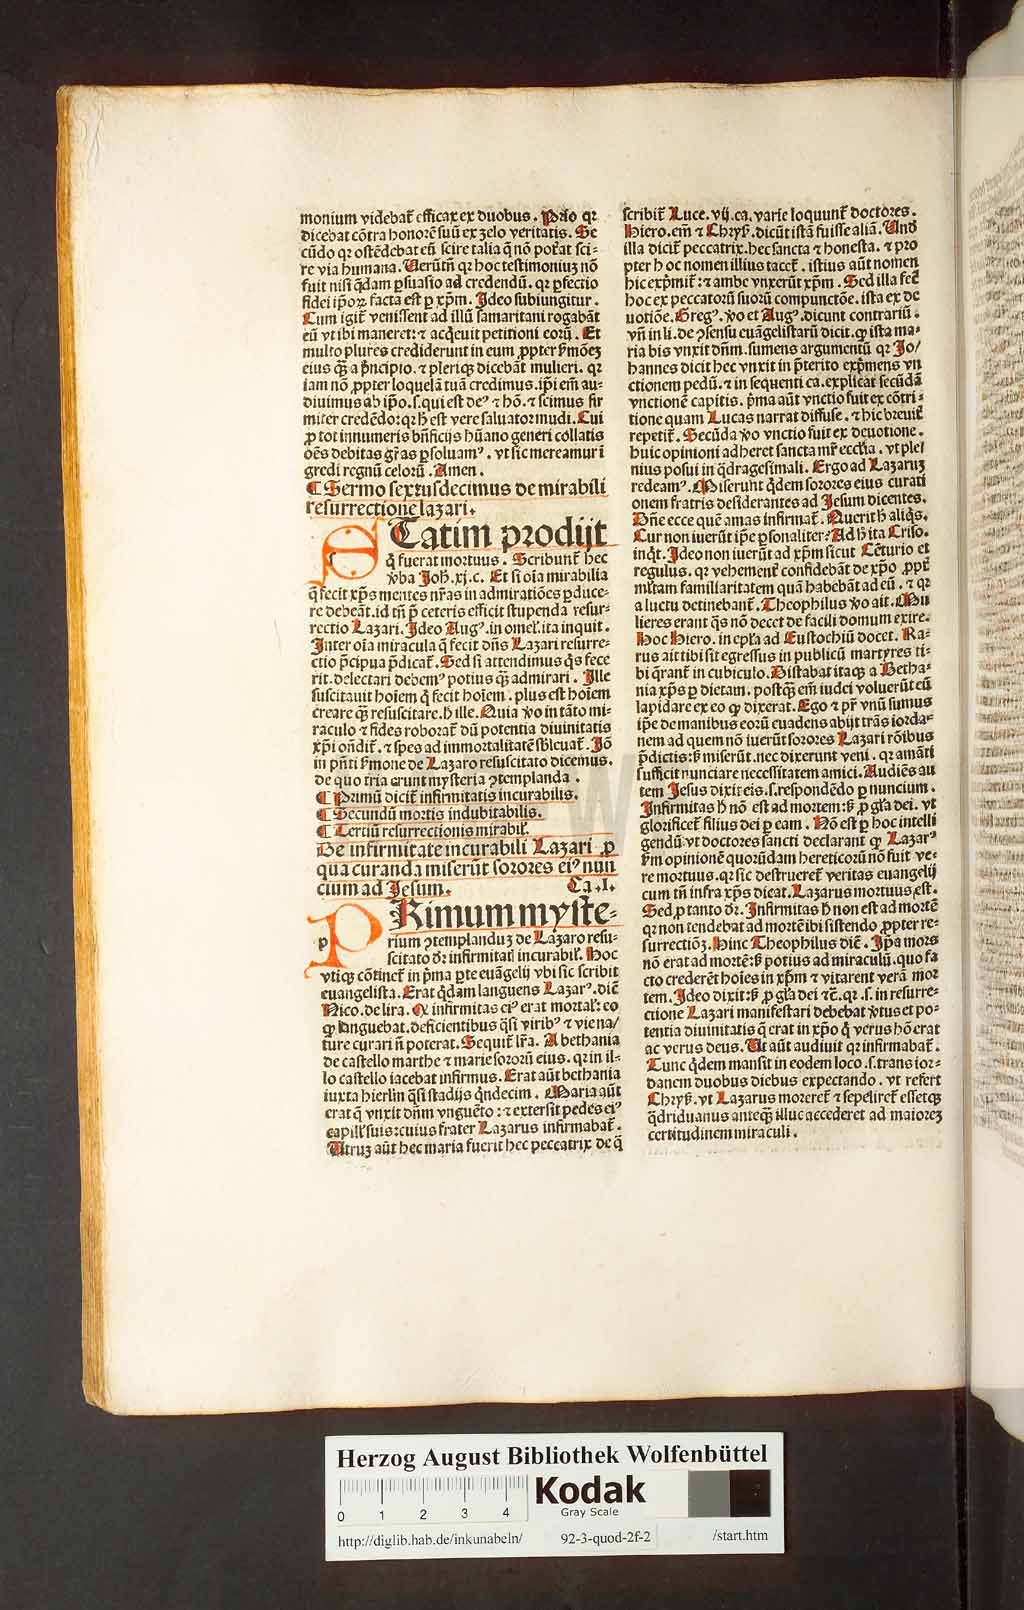 monium videbat̃ efficax ex duobus. Pͥmo qꝛ
dicebat cõtra honorẽ suũ ex zelo veritatis. Se
cũdo qꝛ ostẽdebat eũ scire talia q̃ nõ poꝛat sci⸗
re via humana. Uerũtñ qꝛ hoc testimoniuꝫ nõ
fuit nisi q̃dam ꝑsuasio ad credendũ. qꝛ ꝑfectio
fidei ipoꝝ facta est ꝑ xp̃m. Ideo subiungitur.
Cum igit̃ venissent ad illũ samaritani rogabãt
eũ vt ibi maneret: ⁊ acq̃euit petitioni eorũ. Et
multo plures crediderunt in eum ꝓpter ẜmõeꝫ
eius q̃ꝫ a pͥncipio. ⁊ pleriqꝫ dicebãt mulieri. qꝛ
iam nõ ꝓpter loquelã tuã credimus. ip̃i em̃ au⸗
diuimus ab ip̃o .s. qui est deꝰ ⁊ hõ. ⁊ scimus fir
miter credẽdo: qꝛ h̃ est vere saluator mũdi. Cui
ꝓ tot innumeris bñficijs hũano generi collatis
oẽs debitas gr̃as ꝑsoluamꝰ. vt sic mereamur ĩ
gredi regnũ celorũ. Amen.
¶ Sermo sextusdecimus de mirabili
resurrectione lazari.
STatim prodijt
q̃ fuerat mortuus. Scribunt̃ hec
ꝟba Joh̃. xj. c. Et si oĩa mirabilia
q̃ fecit xp̃s mentes nr̃as in admiratiões ꝑduce⸗
re debeãt. id tñ p̃ ceteris efficit stupenda resur⸗
rectio Lazari. Ideo Augꝰ. in omel̃. ita inquit.
Inter oĩa miracula q̃ fecit dñs Lazari resurre⸗
ctio p̃cipua p̃dicat̃. Sed si attendimus q̃s fece
rit. delectari debemꝰ potius q̃ꝫ admirari. Ille
suscitauit hoiem q̃ fecit hoiem. plus est hoiem
creare q̃ꝫ resuscitare. h̃ ille. Quia ꝟo in tãto mi⸗
raculo ⁊ fides roborat̃ dũ potentia diuinitatis
xp̃i oñdit̃. ⁊ spes ad immortalitatẽ sb̃leuat̃. Jõ
in p̃nti ẜmone de Lazaro resuscitato dicemus.
de quo tria erunt mysteria ꝯtemplanda.
¶ Primũ dicit̃ infirmitatis incurabilis.
¶ Secundũ mortis indubitabilis.
¶ Tertiũ resurrectionis mirabil̃.
De infirmitate incurabili Lazari ꝓ
qua curanda miserũt sorores eiꝰ nun
cium ad Jesum. Ca. I.
p PRimum myste⸗
rium ꝯtemplanduꝫ de Lazaro resu⸗
scitato dr̃: infirmitatĩ incurabil̃. Hoc
vtiqꝫ cõtinet̃ in p̃ma ꝑte euãgelij vbi sic scribit
euangelista. Erat q̃dam languens Lazarꝰ. dic̃
Nico. de lira. Q infirmitas eiꝰ erat mortal̃: eo
ꝙ languebat. deficientibus q̃si viribꝰ ⁊ vie na/
ture curari ñ poterat. Sequit̃ lr̃a. A bethania
de castello marthe ⁊ marie sororũ eius. qꝛ in il⸗
lo castello iacebat infirmus. Erat aũt bethania
iuxta hierl̃m q̃si stadijs q̃ndecim. Maria aũt
erat q̃ vnxit dñm vnguẽto: ⁊ extersit pedes eiꝰ
capill̃ suis: cuius frater Lazarus infirmabat̃.
Utruꝫ aũt hec maria fuerit hec peccatrix de q̃
scribit̃ Luce. vij. ca. varie loquunt̃ doctores.
Hiero. em̃ ⁊ Chryẜ. dicũt istã fuisse aliã. Und̃
illa dicit̃ peccatrix. hec sancta ⁊ honesta. ⁊ pro
pter hoc nomen illius tacet̃. istius aũt nomen
hic exp̃mit̃: ⁊ ambe vnxerũt xp̃m. Sed illa fec̃
hoc ex peccatorũ suorũ compunctõe. ista ex de
uotiõe. Gregꝰ. ꝟo et Augꝰ. dicunt contrariũ.
vñ in li. de ꝯsensu euãgelistarũ dicit. ꝙ ista ma⸗
ria bis vnxit dñm. sumens argumentũ qꝛ Jo/
hannes dicit hec vnxit in p̃terito exp̃mens vn
ctionem pedũ. ⁊ in sequenti ca. explicat secũdã
vnctionẽ capitis. p̃ma aũt vnctio fuit ex cõtri⸗
tione quam Lucas narrat diffuse. ⁊ hic breuit̃
repetit̃. Secũda ꝟo vnctio fuit ex deuotione.
huic opinioni adheret sancta mr̃ ecclia. vt plei
nius posui in q̃dragesimali. Ergo ad Lazaruꝫ
redeamꝰ. Miserunt q̃dem sorores eius curati
onem fratris desiderantes ad Jesum dicentes.
Dñe ecce quẽ amas infirmat̃. Querit h̃ aliq̃s.
Cur non iuerũt ip̃e ꝑsonaliter? Ad h̃ ita Criso.
inq̃t. Ideo non iuerũt ad xp̃m sicut Cẽturio et
regulus. qꝛ vehement̃ confidebãt de xp̃o ꝓpt̃
mltam familiaritatem quã habebãt ad eũ. ⁊ qꝛ
a luctu detinebant̃. Theophilus ꝟo ait. Mu
lieres erant q̃s nõ decet de facili domum exire.
Hoc Hiero. in epl̃a ad Eustochiũ docet. Ra⸗
rus ait tibi sit egressus in publicũ martyres ti⸗
bi q̃rant̃ in cubiculo. Distabat itaqꝫ a Betha⸗
nia xp̃s ꝑ dietam. postq̃ꝫ em̃ iudei voluerũt eũ
lapidare ex eo ꝙ dixerat. Ego ⁊ pr̃ vnũ sumus
ip̃e de manibus eorũ euadens abijt trãs iorda⸗
nem ad quem nõ iuerũt sorores Lazari rõibus
p̃dictis: ẜ miserũt. nec dixerunt veni. qꝛ amãti
sufficit nunciare necessitatem amici. Audiẽs au
tem Jesus dixit eis. s. respondẽdo ꝑ nuncium.
Infirmitas h̃ nõ est ad mortem: ẜ ꝓ gl̃a dei. vt
glorificet̃ filius dei ꝑ eam. Nõ est ꝑ hoc intelli
gendũ vt doctores sancti declarant ꝙ Lazarꝰ
ẜm opinionẽ quorũdam hereticorũ nõ fuit ve⸗
re mortuus. qꝛ sic destrueret̃ veritas euangelij
cum tñ infra xp̃s dicat. Lazarus mortuus est.
Sed ꝓ tanto dr̃. Infirmitas h̃ non est ad mortẽ
qꝛ non tendebat ad mortẽ ibi sistendo ꝓpter re⸗
surrectiõeꝫ. Hinc Theophilus dic̃. Ip̃a mors
nõ erat ad mortẽ: ẜ potius ad miraculũ. quo fa
cto crederẽt hoies in xp̃m ⁊ vitarent verã mor
tem. Ideo dixit: ẜ ꝓ gl̃a dei ⁊c̃. qꝛ .s. in resurre⸗
ctione Lazari manifestari debebat ꝟtus et po⸗
tentia diuinitatis q̃ erat in xp̃o q̃ verus hõ erat
ac verus deus. Ut aũt audiuit qꝛ infirmabat̃.
Tunc q̃dem mansit in eodem loco .s. trans ior⸗
danem duobus diebus expectando. vt refert
Chryẜ. vt Lazarus moreret̃ ⁊ sepeliret̃ essetqꝫ
q̃driduanus anteq̃ꝫ illuc accederet ad maioreꝫ
certitudinem miraculi.
Herzog August Bibliothek Wolfenbüttel
0 1 2 3 4
Kodak
Gray Scale
http://diglib.hab.de/inkunabeln/ 92-3-quod-2f-2 /start.htm